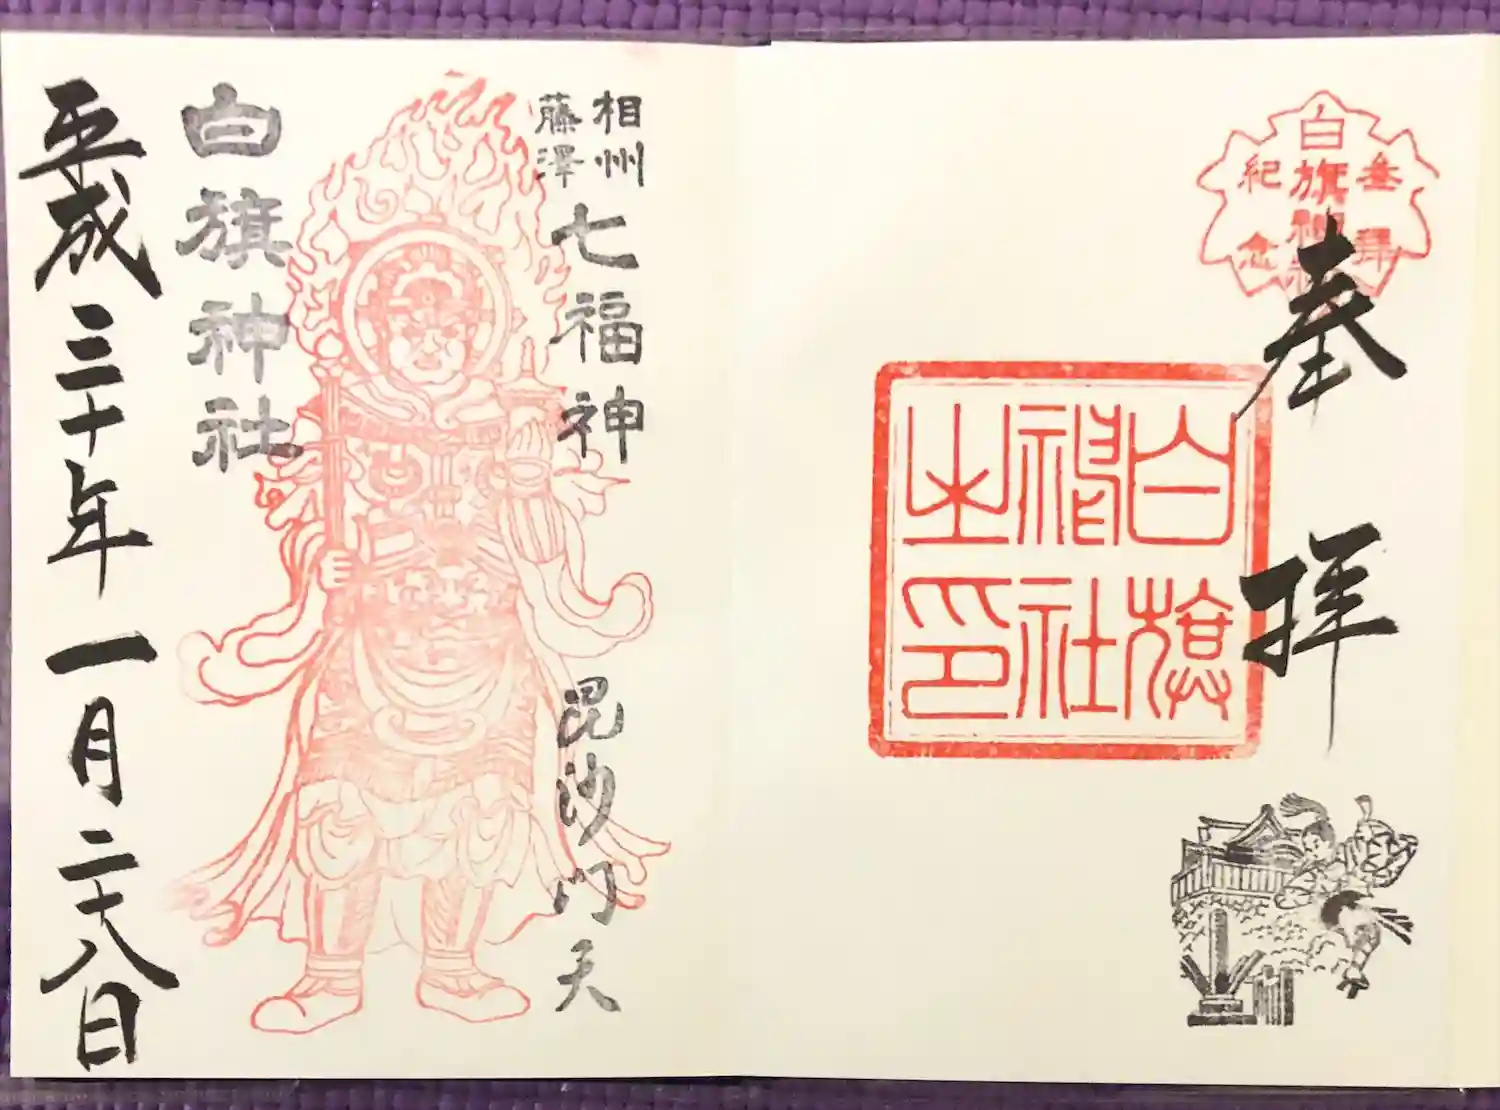 参拝
白旗神社
紀念
奉拝
白旗
神社
之印
相州
藤澤
七福神
毘沙門天
白旗神社
平成三十年一月二十八日